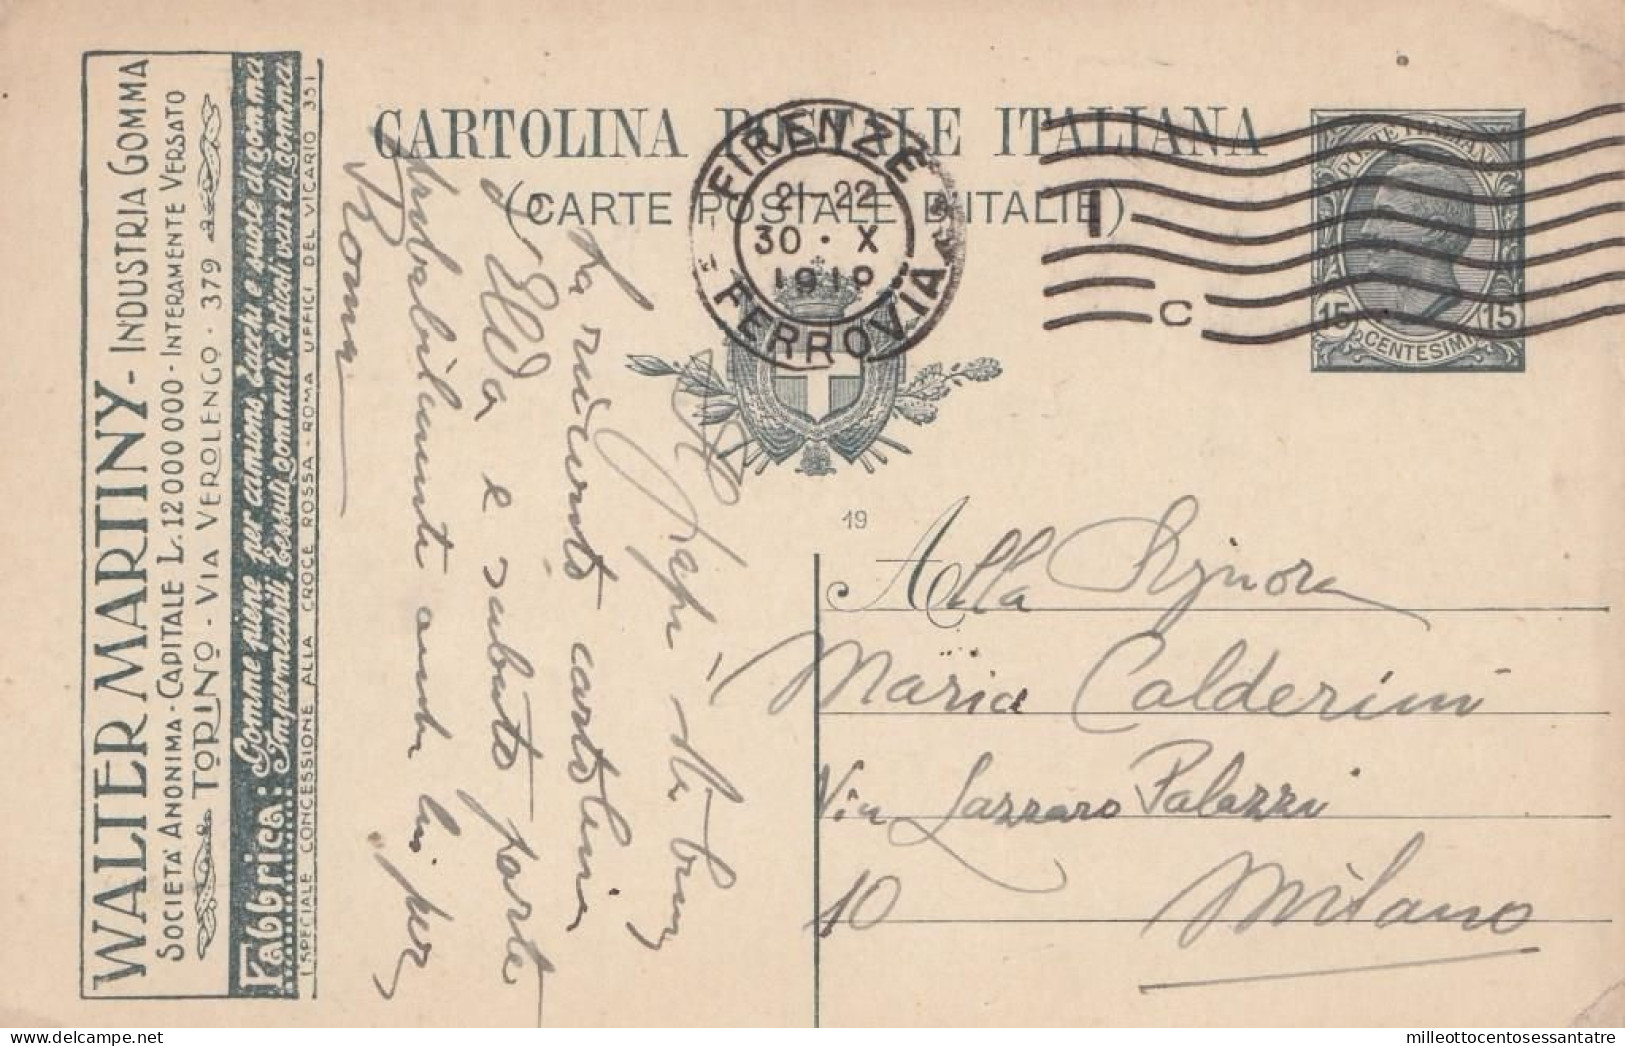 WALTER MARTINY - INDUSTRIA GOMMA
SOCIETA' ANONIMA - CAPITALE L. 12000000 - INTERAMENTE VERSATO
TORINO - VIA VEROLENGO - 379
Fabbrica: Gomme piene per camions, tacchi e suole di gomma
Impermeabili, tessuti gommati, articoli vari di gomma
SPECIALE CONCESSIONE ALLA CROCE ROSSA - ROMA UFFICI DEL VICARIO 35
CARTOLINA POSTALE ITALIANA
(CARTE POSTALE D'ITALIE)
FIRENZE
21-22
30 · X
FERROVIA
C
POSTE ITALIANE
15 CENTESIMI 15
19
Alla Signora
Maria Calderini
Via Lazzaro Palazzi
10 Milano
Papà sta
La ricevuto cartolina
d' Elda e subito parte
probabilmente anche lui per
Roma
milleottocentosessantatre